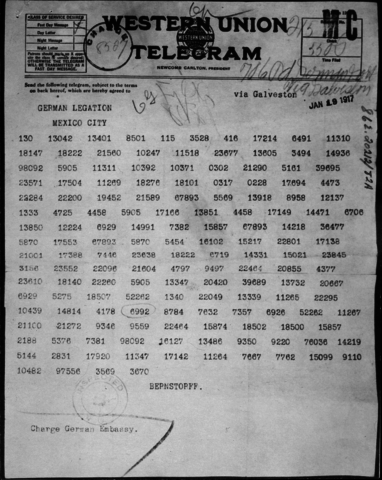 CLASS OF SERVICE DESIRED
Fast Day Message
Day Letter
Night Message
Night Letter
WESTERN UNION
WESTERN UNION
TELEGRAM
NEWCOMB CARLTON, PRESIDENT
Time Filed
Send the following telegram, subject to the terms
on back hereof, which are hereby agreed to
via Galveston
JAN 19 1917
GERMAN LEGATION
MEXICO CITY
130 13042 13401 8501 115 3528 416 17214 6491 11310
18147 18222 21560 10247 11518 23677 13605 3494 14936
98092 5905 11311 10392 10371 0302 21290 5161 39695
23571 17504 11269 18276 18101 0317 0228 17694 4473
22284 22200 19452 21589 67893 5569 13918 8958 12137
1333 4725 4458 5905 17166 13851 4458 17149 14471 6706
13850 12224 6929 14991 7382 15857 67893 14218 36477
5870 17553 67893 5870 5454 16102 15217 22801 17138
21001 17388 7446 23638 18222 6719 14331 15021 23845
3156 23552 22096 21604 4797 9497 22464 20855 4377
23610 18140 22260 5905 13347 20420 39689 13732 20667
6929 5275 18507 52262 1340 22049 13339 11265 22295
10439 14814 4178 6992 8784 7632 7357 6926 52262 11267
21100 21272 9346 9559 22464 15874 18502 18500 15857
2188 5376 7381 98092 16127 13486 9350 9220 76036 14219
5144 2831 17920 11347 17142 11264 7667 7762 15099 9110
10482 97556 3569 3670
BERNSTORFF.
Charge German Embassy.